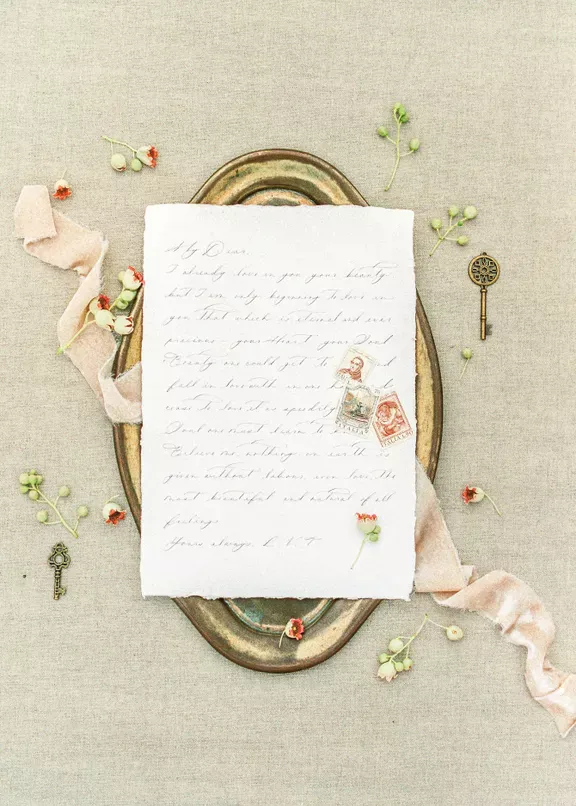 My Dear,
I already love in you your beauty
but I am only beginning to love in
you that which is eternal and ever
precious - your heart, your soul.
Beauty one could get to
fall in love with in one
cease to love it as speedily
Soul one must learn to
Believe me, nothing on earth is
given without labour, even love, the
most beautiful and natural of all
feelings
Yours always, L. N. T
ITALIA
ITALIA